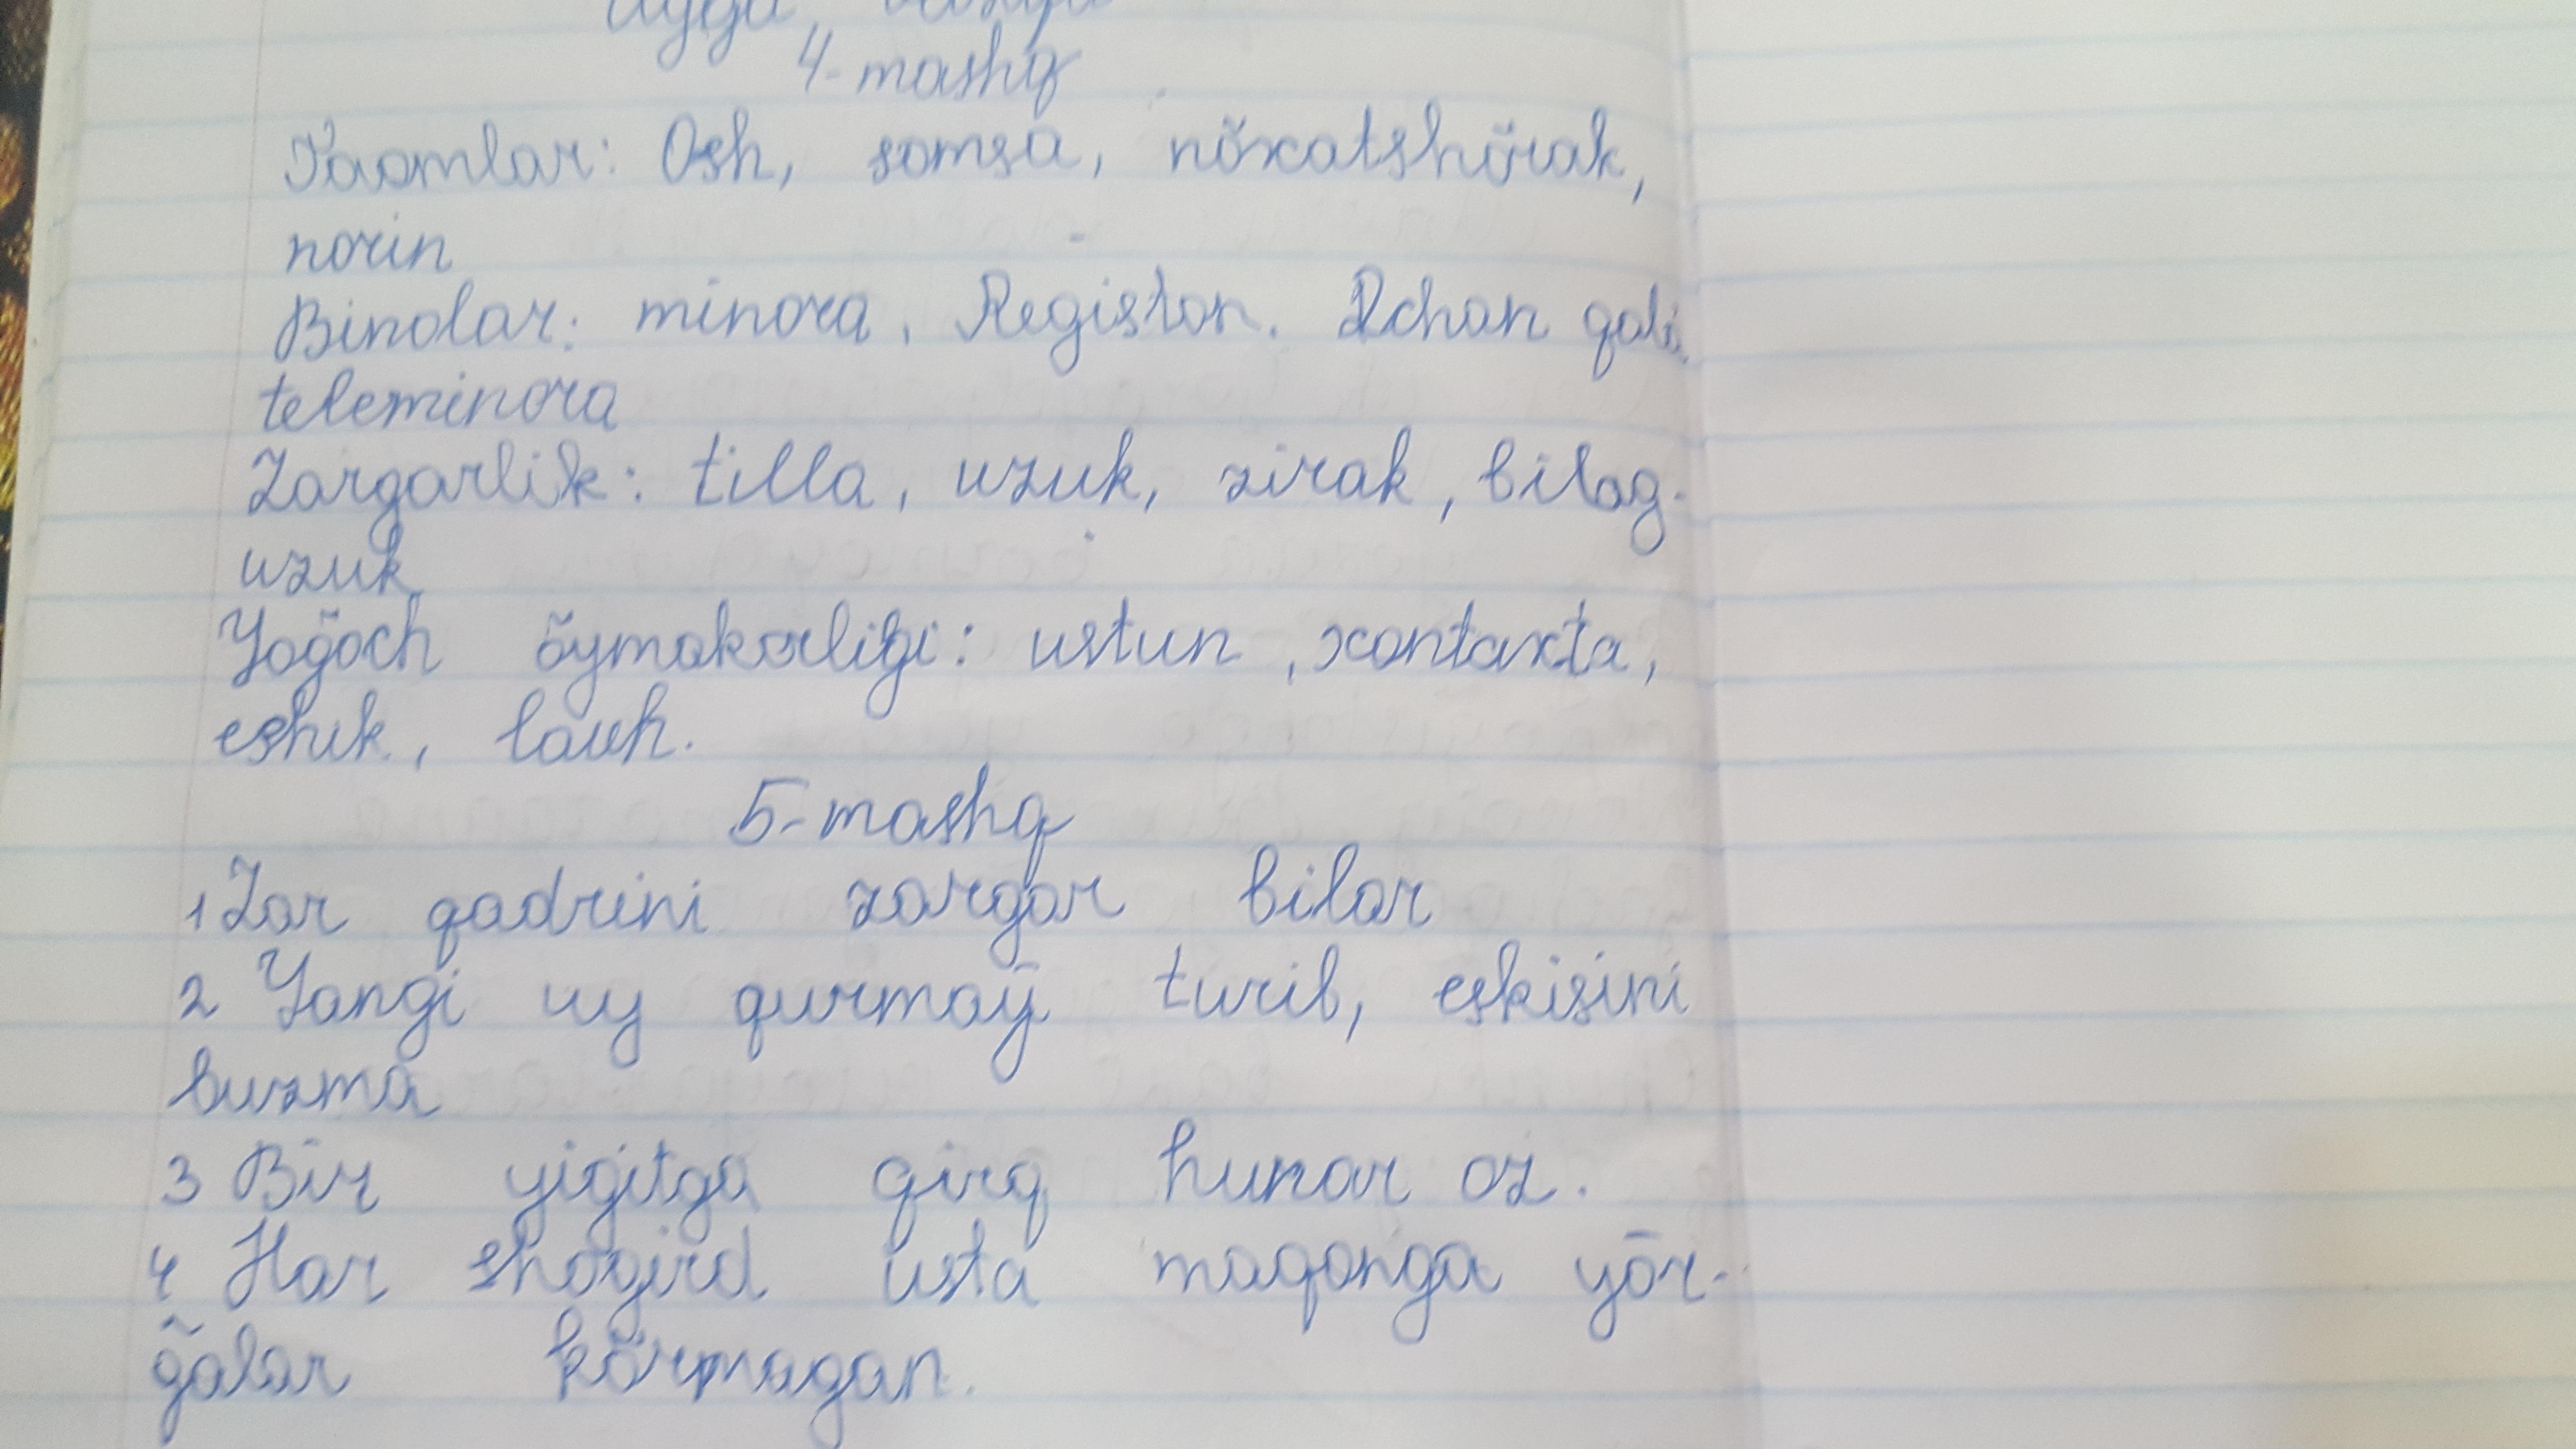 4-mashq
Taomlar: Osh, somsa, nõxatshõrak,
norin
Binolar: minora, Registon. Ichan qal
teleminora
Zargarlik: tilla, uzuk, zirak, bilag-
uzuk
Yogõch õymakorligi: ustun, xontaxta,
eshik, lavh.
5-mashq
1 Zar qadrini zargar bilar
2 Yangi uy qurmay turib, eskisini
buzma
3 Bir yigitga qirq hunar oz.
4 Har shogird usta maqonga yõr-
g̃alar kõrmagan.